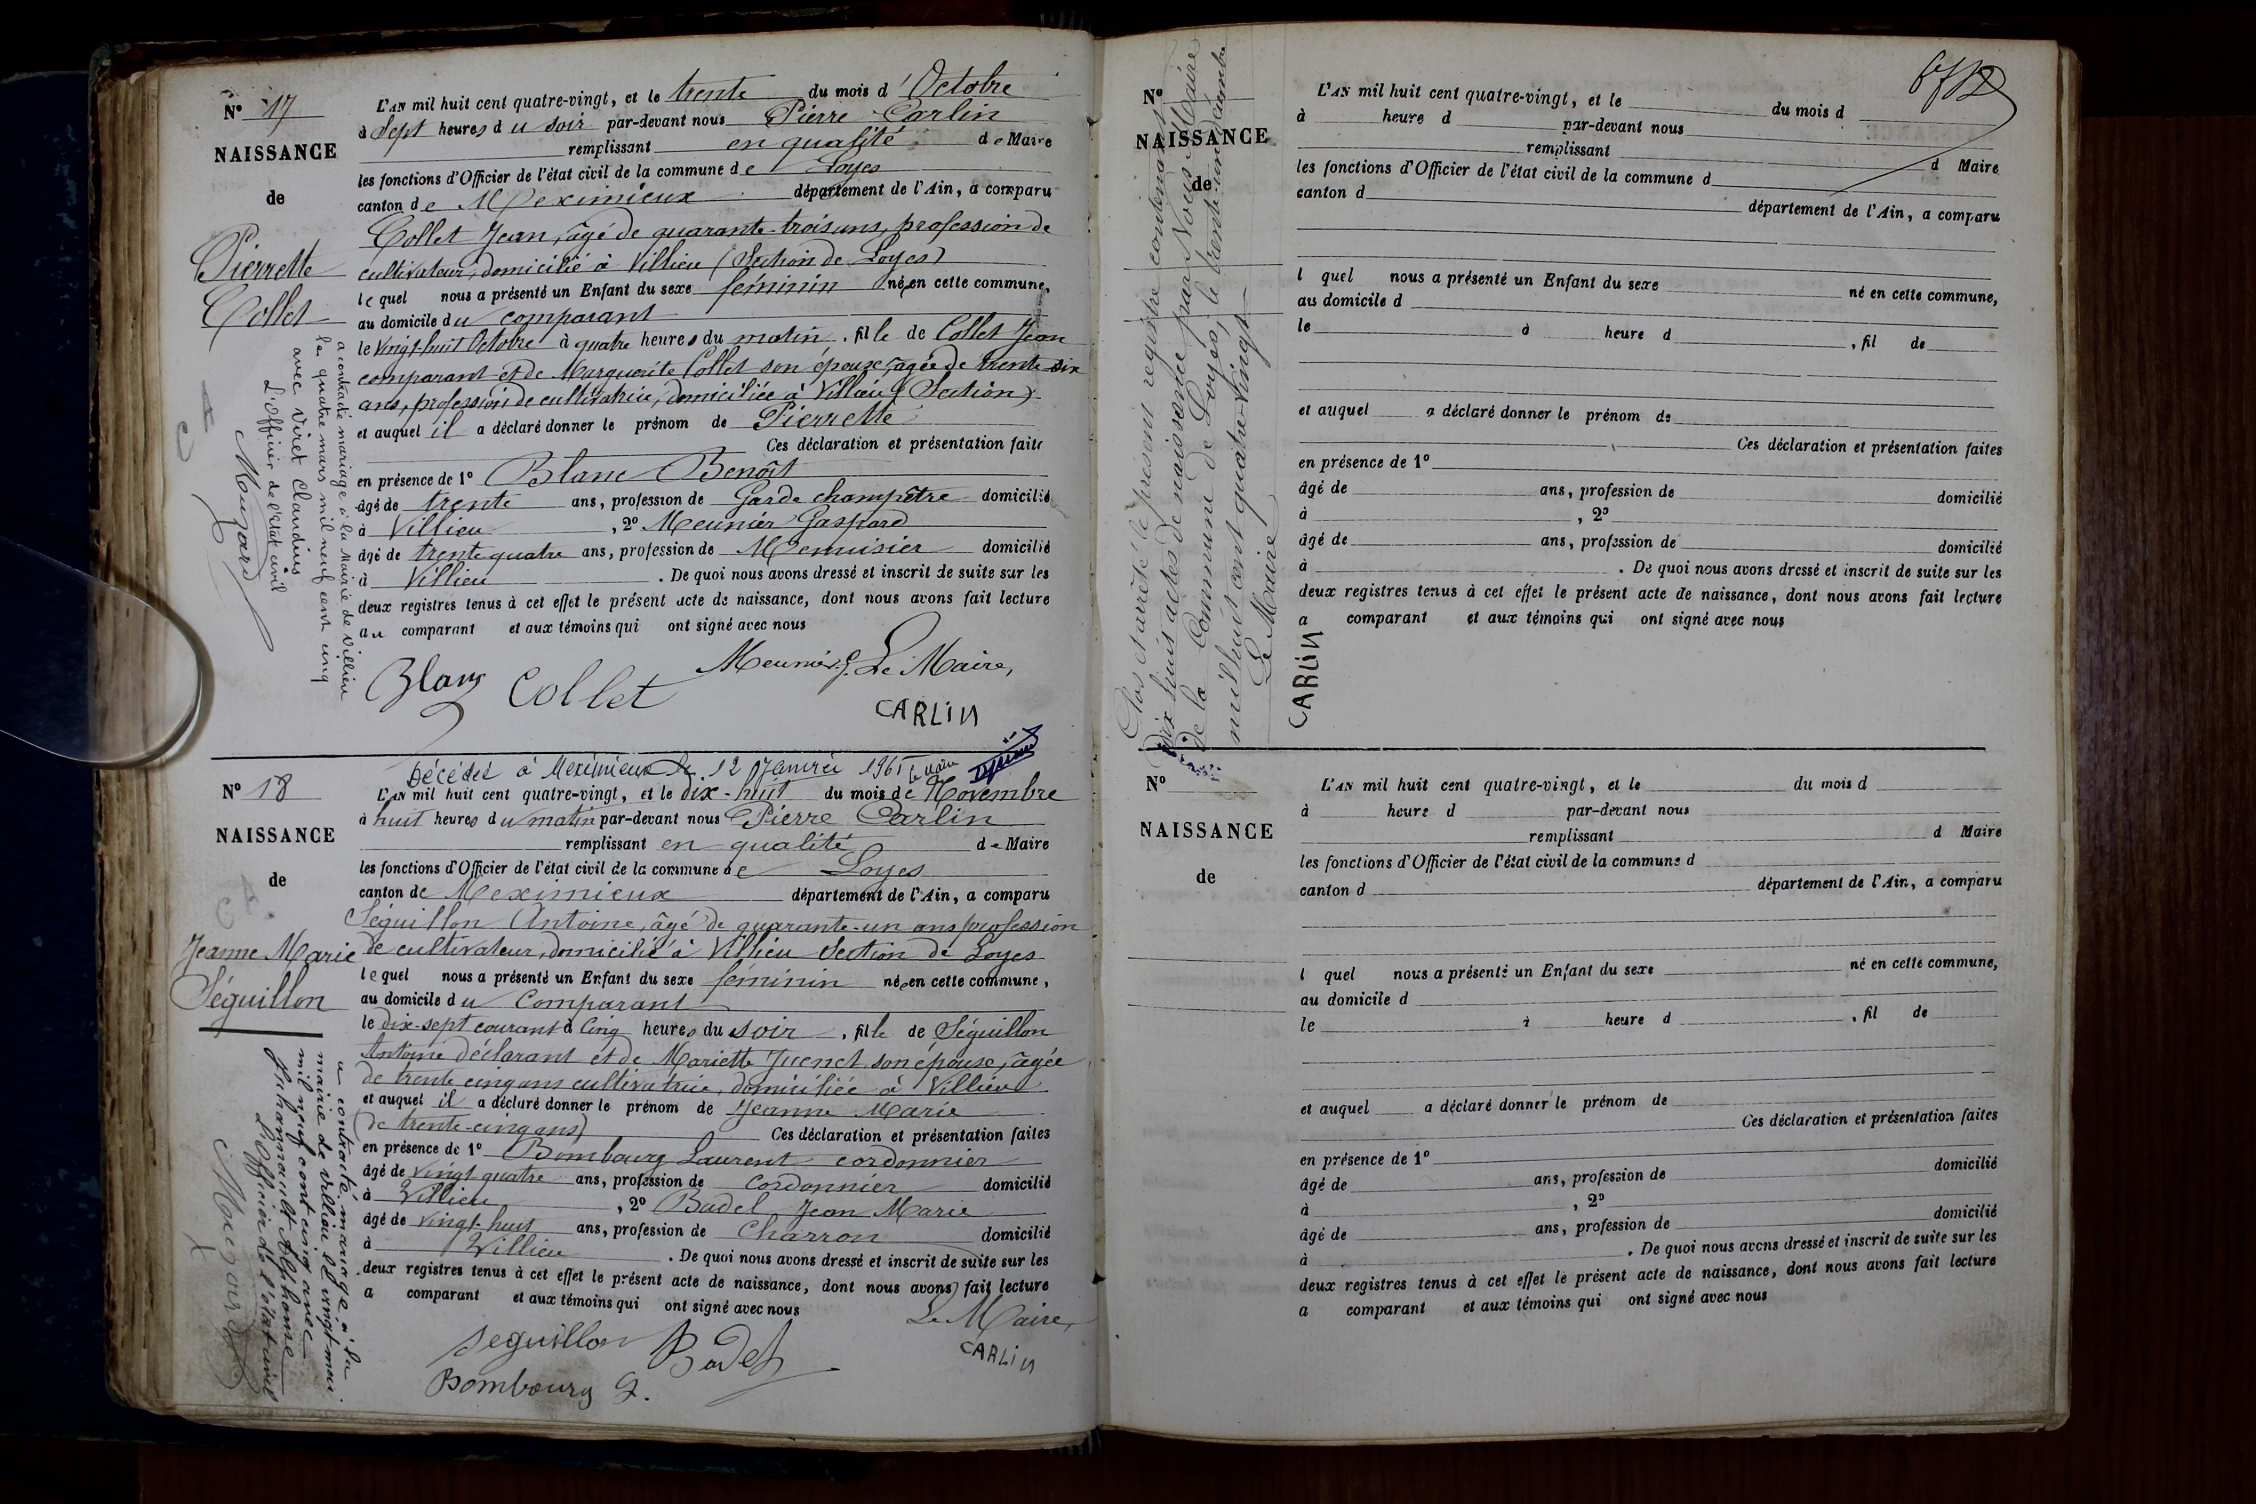 N° 17
NAISSANCE
de
Pierrette
Collet
a contracté mariage à la Mairie de Villieu
le quatre mars mil neuf cent cinq
avec Viret Claudius
L'Officier de l'état civil
L'AN mil huit cent quatre-vingt, et le trente du mois d'Octobre
à Sept heures du soir par-devant nous Pierre Carlin
remplissant en qualité de Maire
les fonctions d'Officier de l'état civil de la commune de Loyes
canton de Meximieux département de l'Ain, a comparu
Collet Jean, âgé de quarante-trois ans, profession de
cultivateur, domicilié à Villieu (Section de Loyes)
lequel nous a présenté un Enfant du sexe féminin née en cette commune,
au domicile du comparant
le vingt-huit Octobre à quatre heures du matin, fille de Collet Jean
comparant et de Marguerite Collet son épouse, agée de trente-six
ans, profession de cultivatrice, domiciliée à Villieu (Section)
et auquel il a déclaré donner le prénom de Pierrette
Ces déclaration et présentation faites
en présence de 1° Blanc Benoît
âgé de trente ans, profession de Garde champêtre domicilié
à Villieu, 2° Meunier Gaspard
âgé de trente quatre ans, profession de Menuisier domicilié
à Villieu. De quoi nous avons dressé et inscrit de suite sur les
deux registres tenus à cet effet le présent acte de naissance, dont nous avons fait lecture
au comparant et aux témoins qui ont signé avec nous
Blanc Collet Meunier G. Le Maire,
CARLIN
Décédée à Meximieux le 12 Janvier 1961 le Maire
N° 18
NAISSANCE
de
Jeanne Marie
Séguillon
a contracté mariage à la
mairie de Villieu le vingt mai
mil neuf cent cinq avec
L'Officier de l'état civil
L'AN mil huit cent quatre-vingt, et le dix-huit du mois de Novembre
à huit heures du matin par-devant nous Pierre Carlin
remplissant en qualité de Maire
les fonctions d'Officier de l'état civil de la commune de Loyes
canton de Meximieux département de l'Ain, a comparu
Séguillon Antoine, âgé de quarante-un ans profession
de cultivateur, domicilié à Villieu Section de Loyes
lequel nous a présenté un Enfant du sexe féminin née en cette commune,
au domicile du Comparant
le dix-sept courant à Cinq heures du soir, fille de Séguillon
Antoine déclarant et de Mariette Juenet son épouse, âgée
de trente cinq ans cultivatrice, domiciliée à Villieu
et auquel il a déclaré donner le prénom de Jeanne Marie
(de trente-cinq ans) Ces déclaration et présentation faites
en présence de 1° Bombourg Laurent cordonnier
âgé de vingt quatre ans, profession de Cordonnier domicilié
à Villieu, 2° Badel Jean Marie
âgé de vingt-huit ans, profession de Charron domicilié
à Villieu. De quoi nous avons dressé et inscrit de suite sur les
deux registres tenus à cet effet le présent acte de naissance, dont nous avons fait lecture
a comparant et aux témoins qui ont signé avec nous
Le Maire,
Seguillon Badel CARLIN
Bombourg
N°
NAISSANCE
de
Clos et arrêté le présent registre contenant
dix huit actes de naissance par Nous Maire
de la Commune de Loyes, le trente-un décembre
mil huit cent quatre-vingt
Le Maire
CARLIN
L'AN mil huit cent quatre-vingt, et le du mois d
à heure d par-devant nous
remplissant d Maire
les fonctions d'Officier de l'état civil de la commune d
canton d département de l'Ain, a comparu
l quel nous a présenté un Enfant du sexe né en cette commune,
au domicile d
le à heure d , fil de
et auquel a déclaré donner le prénom de
Ces déclaration et présentation faites
en présence de 1°
âgé de ans, profession de domicilié
à , 2°
âgé de ans, profession de domicilié
à . De quoi nous avons dressé et inscrit de suite sur les
deux registres tenus à cet effet le présent acte de naissance, dont nous avons fait lecture
a comparant et aux témoins qui ont signé avec nous
N°
NAISSANCE
de
L'AN mil huit cent quatre-vingt, et le du mois d
à heure d par-devant nous
remplissant d Maire
les fonctions d'Officier de l'état civil de la commune d
canton d département de l'Ain, a comparu
l quel nous a présenté un Enfant du sexe né en cette commune,
au domicile d
le à heure d , fil de
et auquel a déclaré donner le prénom de
Ces déclaration et présentation faites
en présence de 1°
âgé de ans, profession de domicilié
à , 2°
âgé de ans, profession de domicilié
à . De quoi nous avons dressé et inscrit de suite sur les
deux registres tenus à cet effet le présent acte de naissance, dont nous avons fait lecture
a comparant et aux témoins qui ont signé avec nous